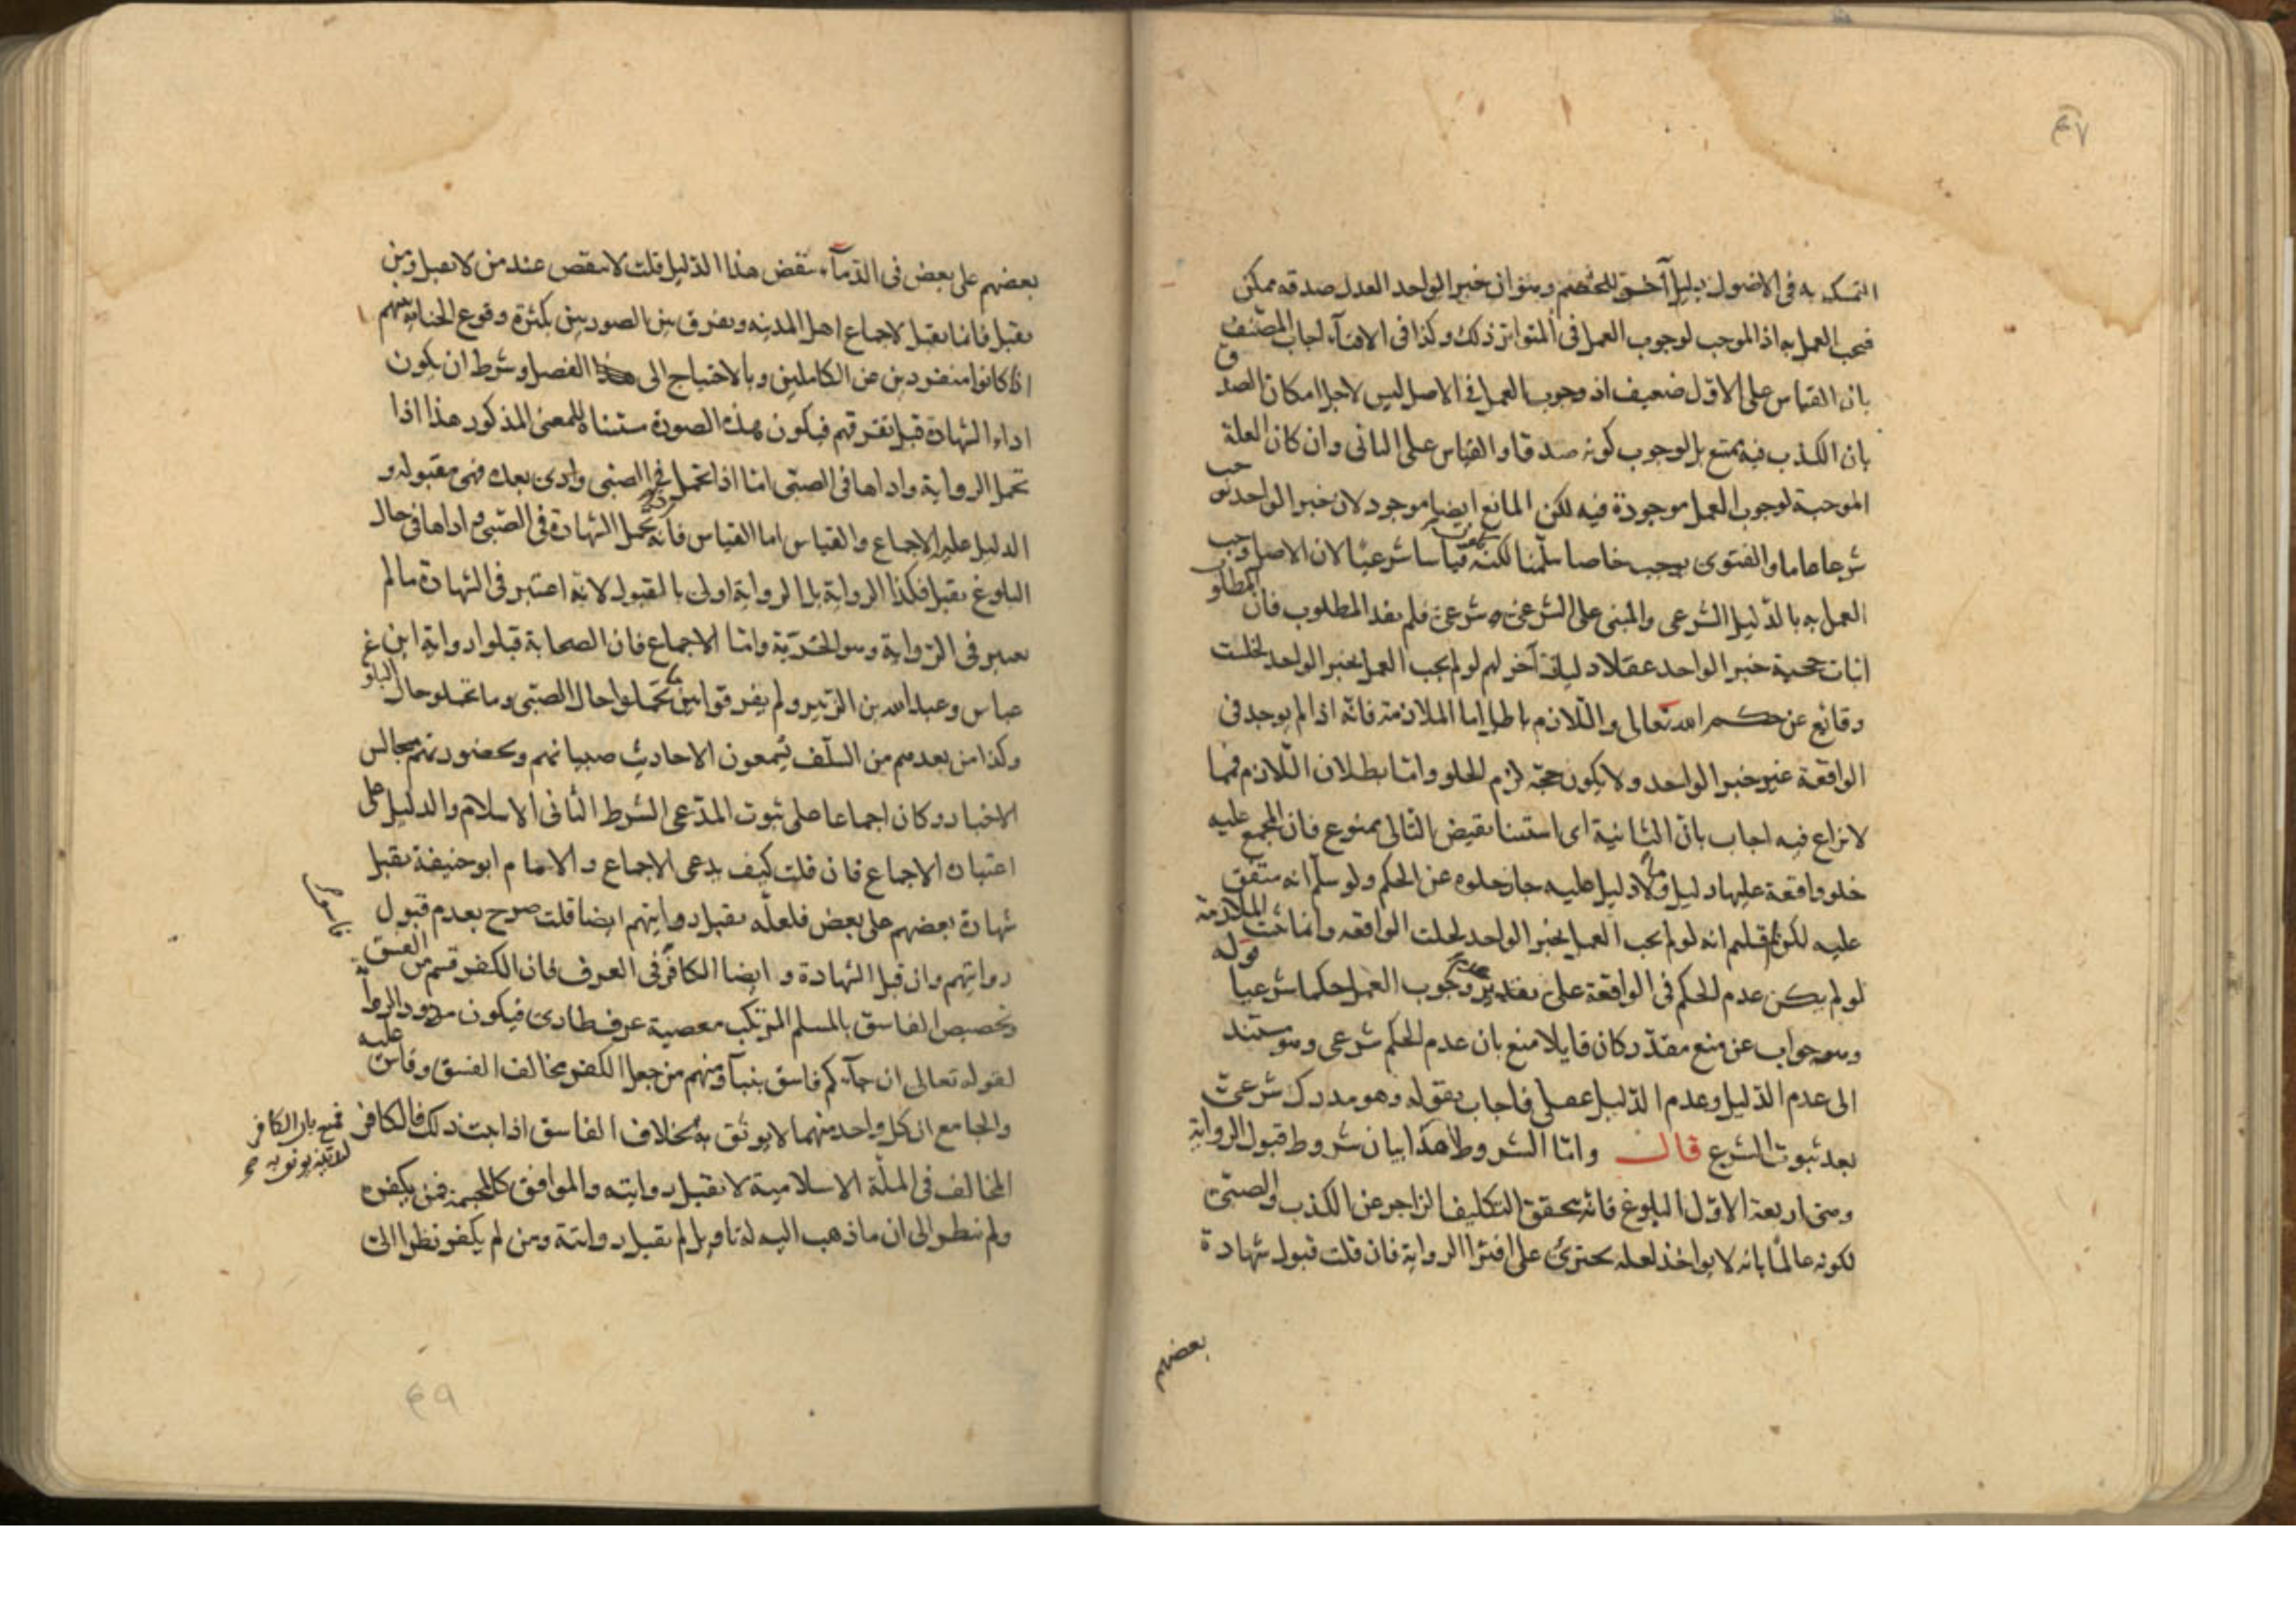 ٤٧
التمسك به في الاصول دليل آخر للخصم وهو ان خبر الواحد العدل صدقه ممكن
فيجب العمل به اذ الموجب لوجوب العمل في المتواتر ذلك وكذا في الافتاء اجاب المصنف
بان القياس على الاول ضعيف اذ وجوب العمل في الاصل ليس لاجل امكان الصدق
بان الكذب فيه يمتنع بل لوجوب كونه صدقا والقياس على الثاني وان كان العلة
الموجبة لوجوب العمل موجودة فيه لكن المانع ايضا موجود لان خبر الواحد يوجب
شرعا عاما والفتوى يوجب خاصا سلمنا لكنه قياسا شرعيا لان الاصل وجب
العمل به بالدليل الشرعي والمبني على الشرعي شرعي فلم يفد المطلوب فان المطلوب
اثبات حجية خبر الواحد عقلا دليل آخر لهم لو لم يجب العمل بخبر الواحد لخلت
وقائع عن حكم الله تعالى واللازم باطل اما الملازمة فانه اذا لم يوجد في
الواقعة غير خبر الواحد ولا يكون حجة لزم الخلو واما بطلان اللازم فمما
لا نزاع فيه اجاب بان الثانية اى استثنا نقيض التالى ممنوع فان المجمع عليه
خلو واقعة عليها دليل وما لا دليل عليه جاز خلوه عن الحكم ولو سلم انه متفق
عليه لكن لم قلتم انه لو لم يجب العمل بخبر الواحد لخلت الواقعه وانما تمت الملازمة
لو لم يكن عدم الحكم في الواقعة على تقدير عدم وجوب العمل حكما شرعيا قوله
وهو جواب عن منع مقدر كان قايلا منع بان عدم الحكم شرعي وهو مستند
الى عدم الدليل وعدم الدليل عقلي فاجاب بقوله وهو مدرك شرعي
بعد ثبوت الشرع قال واما الشروط هذا بيان شروط قبول الرواية
وهى اربعة الاول البلوغ فانه يحقق التكليف الزاجر عن الكذب والصبي
لكونه عالما بانه لا يواخذ لعله يجترئ على افترا الرواية فان قلت قبول شهادة
بعضهم
بعضهم على بعض في الدماء ينقض هذا الدليل قلت لا ينقض عند من لا يقبل ومن
يقبل فانما يقبل لاجماع اهل المدينه ويفرق بين الصورتين بكثرة وقوع الجناية بينهم
اذا كانوا منفردين عن الكاملين وبالاحتياج الى هذا الفصل وشرط ان يكون
اداء الشهادة قبل تفرقهم فيكون هذه الصورة مستثناة للمعنى المذكور هذا اذا
تحمل الرواية واداها في الصبى اما اذا تحمل في الصبى وادى بعده فهى مقبوله و
الدليل عليه الاجماع والقياس اما القياس فانه تحمل الشهادة في الصبى واداها في حال
البلوغ يقبل فكذا الرواية بل الرواية اولى بالقبول لانه اعتبر في الشهادة ما لم
يعتبر في الرواية وهو الحرية واما الاجماع فان الصحابة قبلوا رواية ابن
عباس وعبد الله بن الزبير ولم يفرقوا بين ما تحملوا حال الصبى وما تحملو حال البلوغ
وكذا من بعدهم من السلف يسمعون الاحاديث صبيانهم ويحضرونهم مجالس
الاخبار وكان اجماعا على ثبوت المدعى الشرط الثاني الاسلام والدليل على
اعتباره الاجماع فان قلت كيف يدعى الاجماع والامام ابو حنيفة يقبل
شهادة بعضهم على بعض فلعله يقبل روايتهم ايضا قلت صرح بعدم قبول
روايتهم وان قبل الشهادة و ايضا الكافر في العرف فان الكفر قسم من الفسق
وتخصيص الفاسق بالمسلم المرتكب معصية عرف طارى فيكون مردود الرواية
لقوله تعالى ان جاءكم فاسق بنبأ ومنهم من جعل الكفر مخالف الفسق وقاس عليه
والجامع ان كل واحد منهما لا يوثق به بخلاف الفاسق اذا ثبت ذلك فالكافر
فمنع بان الكافر
المخالف في الملة الاسلامية لا تقبل روايته والموافق كالمجسمة فمن يكفره
ولم ينظر الى ان ما ذهب اليه له تاويل لم تقبل روايتة ومن لم يكفر نظرا الى
٤٩